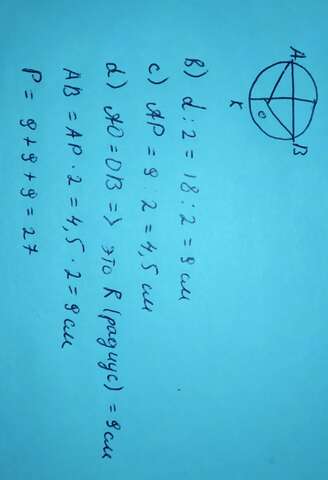 A
K
O
B
b) d : 2 = 18 : 2 = 9 см
c) AP = 9 : 2 = 4,5 см
d) AO = OB => это R (радиус) = 9 см
AB = AP · 2 = 4,5 · 2 = 9 см
P = 9 + 9 + 9 = 27